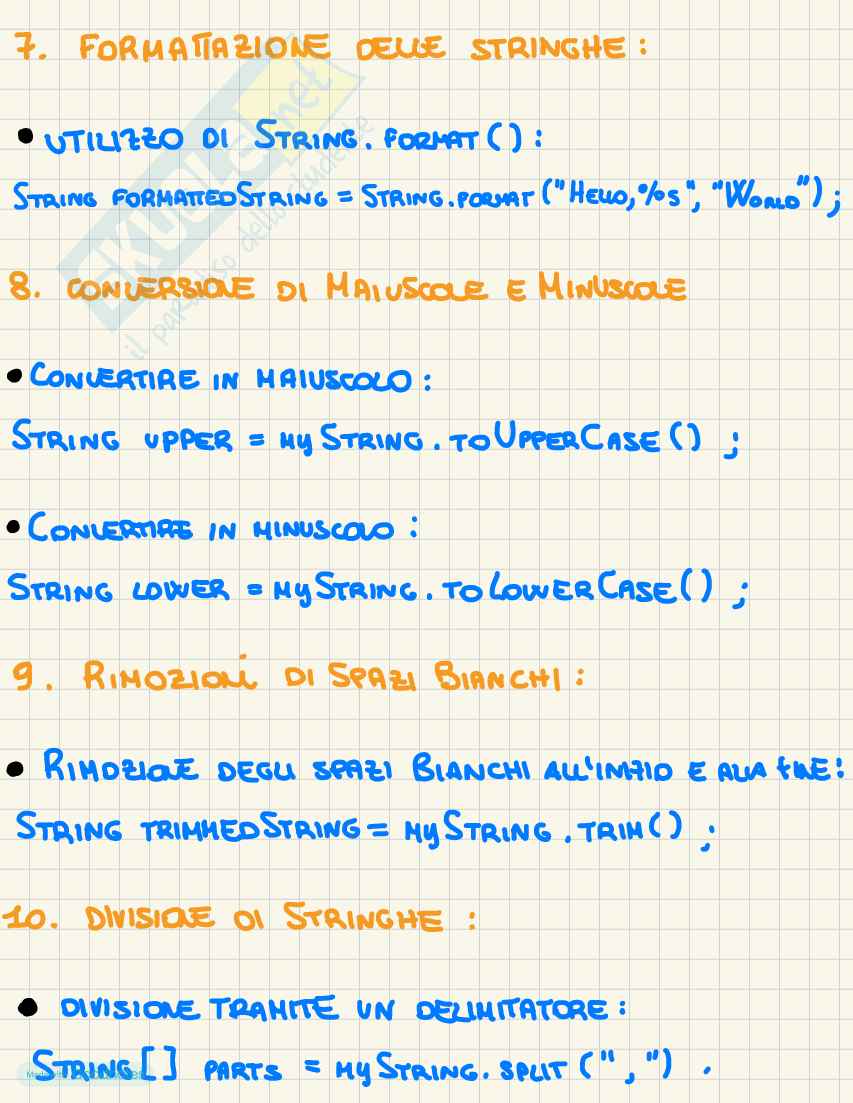 7. FORMATTAZIONE DELLE STRINGHE:
• UTILIZZO DI STRING.FORMAT():
STRING FORMATTEDSTRING = STRING.FORMAT("HELLO,%s", "WORLD");
8. CONVERSIONE DI MAIUSCOLE E MINUSCOLE
• CONVERTIRE IN MAIUSCOLO:
STRING UPPER = MYSTRING.TOUPPERCASE();
• CONVERTIRE IN MINUSCOLO:
STRING LOWER = MYSTRING.TOLOWERCASE();
9. RIMOZIONi DI SPAZI BIANCHI:
• RIMOZIONE DEGLI SPAZI BIANCHI ALL'INIZIO E ALLA fINE:
STRING TRIMMEDSTRING = MYSTRING.TRIM();
10. DIVISIONE DI STRINGHE:
• DIVISIONE TRAMITE UN DELIMITATORE:
STRING[] PARTS = MYSTRING.SPLIT(",") .
SKUOLA.net
il paradiso dello studente